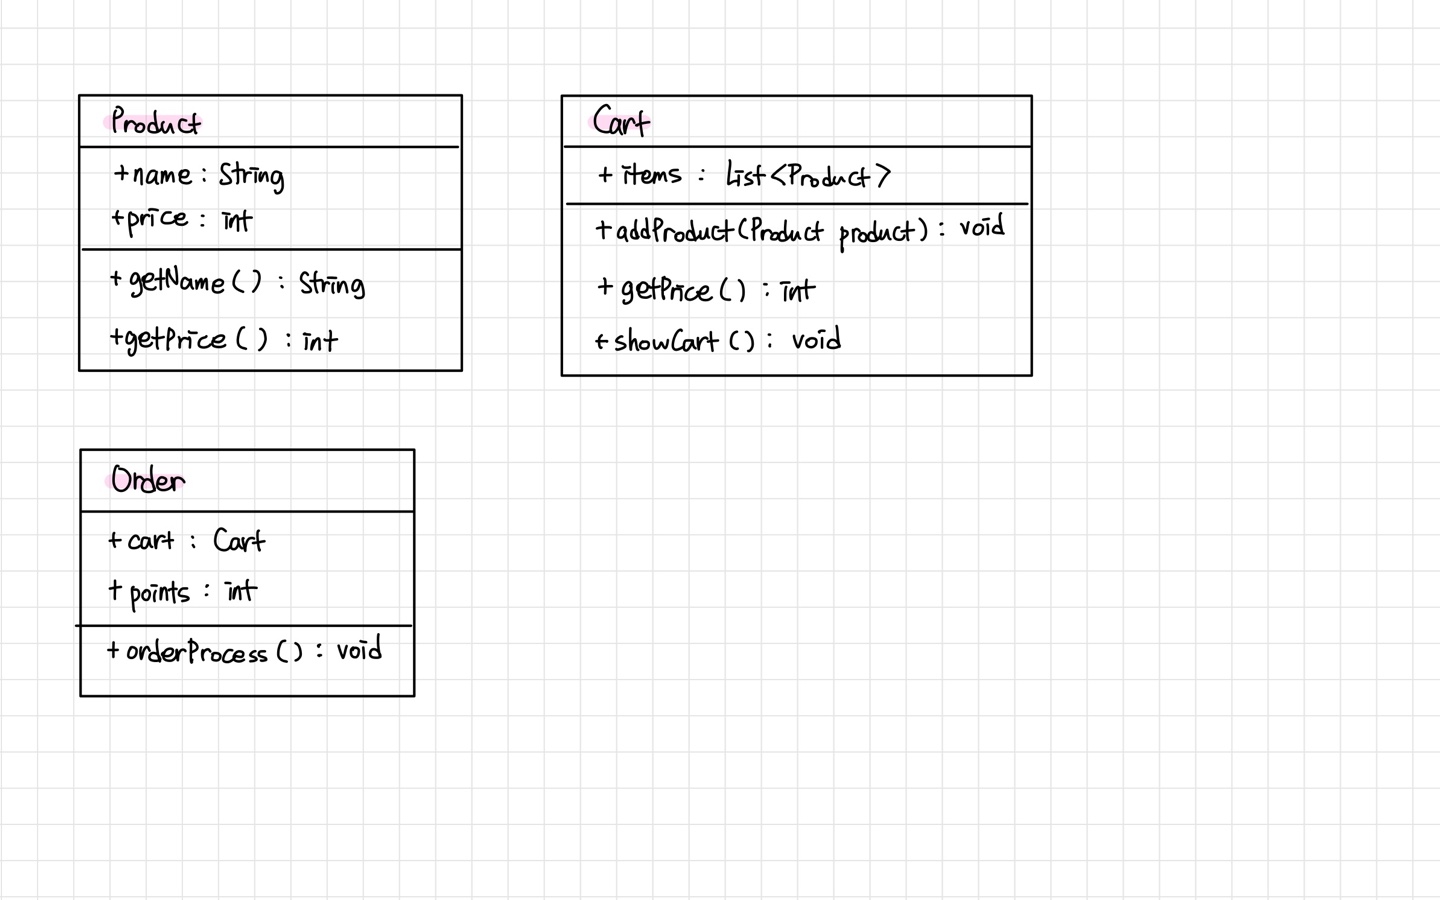 Product
+name : String
+price : int
+ getName ( ) : String
+getPrice ( ) : int
Cart
+ items : List<Product>
+ addProduct(Product product) : void
+ getPrice ( ) : int
+ showCart ( ) : void
Order
+ cart : Cart
+ points : int
+ orderProcess ( ) : void